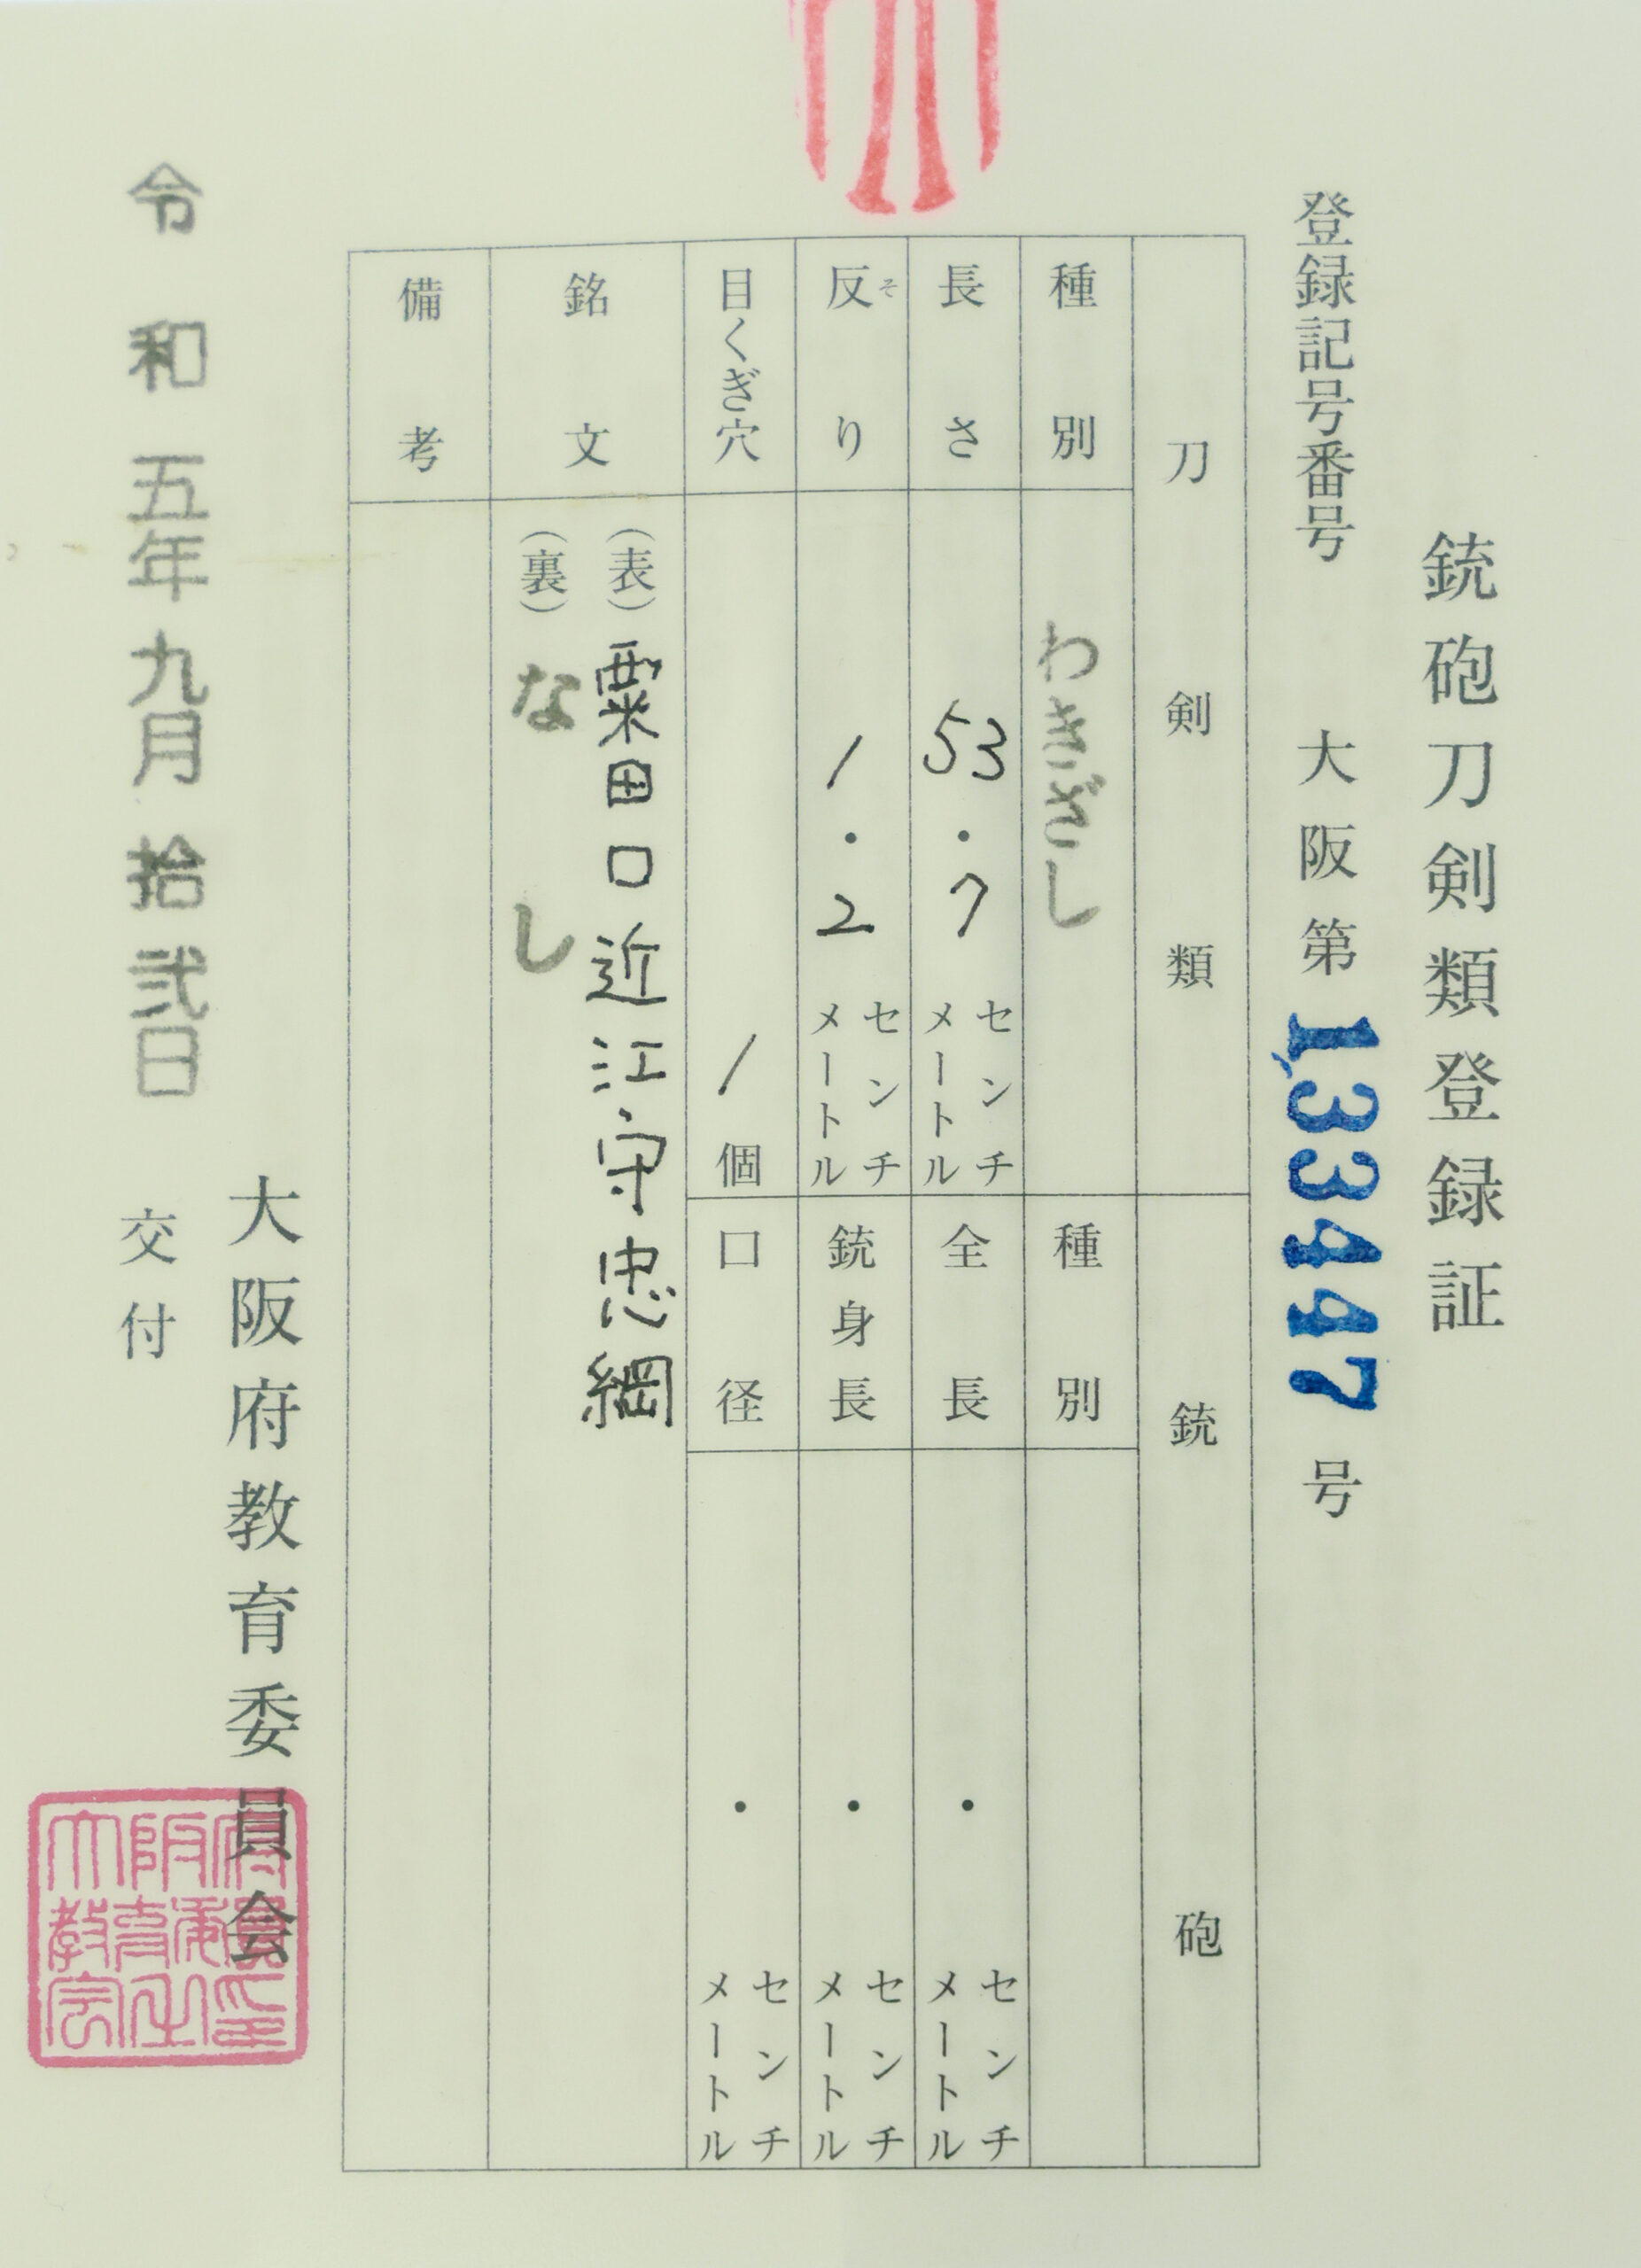 銃砲刀剣類登録証
登録記号番号 大阪第 133447 号
刀剣類
種別 わきざし
長さ 53.7 センチメートル
反り 1.2 センチメートル
そ
目くぎ穴 1 個
銃砲
種別
全長 ・ センチメートル
銃身長 ・ センチメートル
口径 ・ センチメートル
銘文 (表) 粟田口近江守忠綱
(裏) なし
備考
大阪府教育委員会
令和五年九月拾弐日 交付